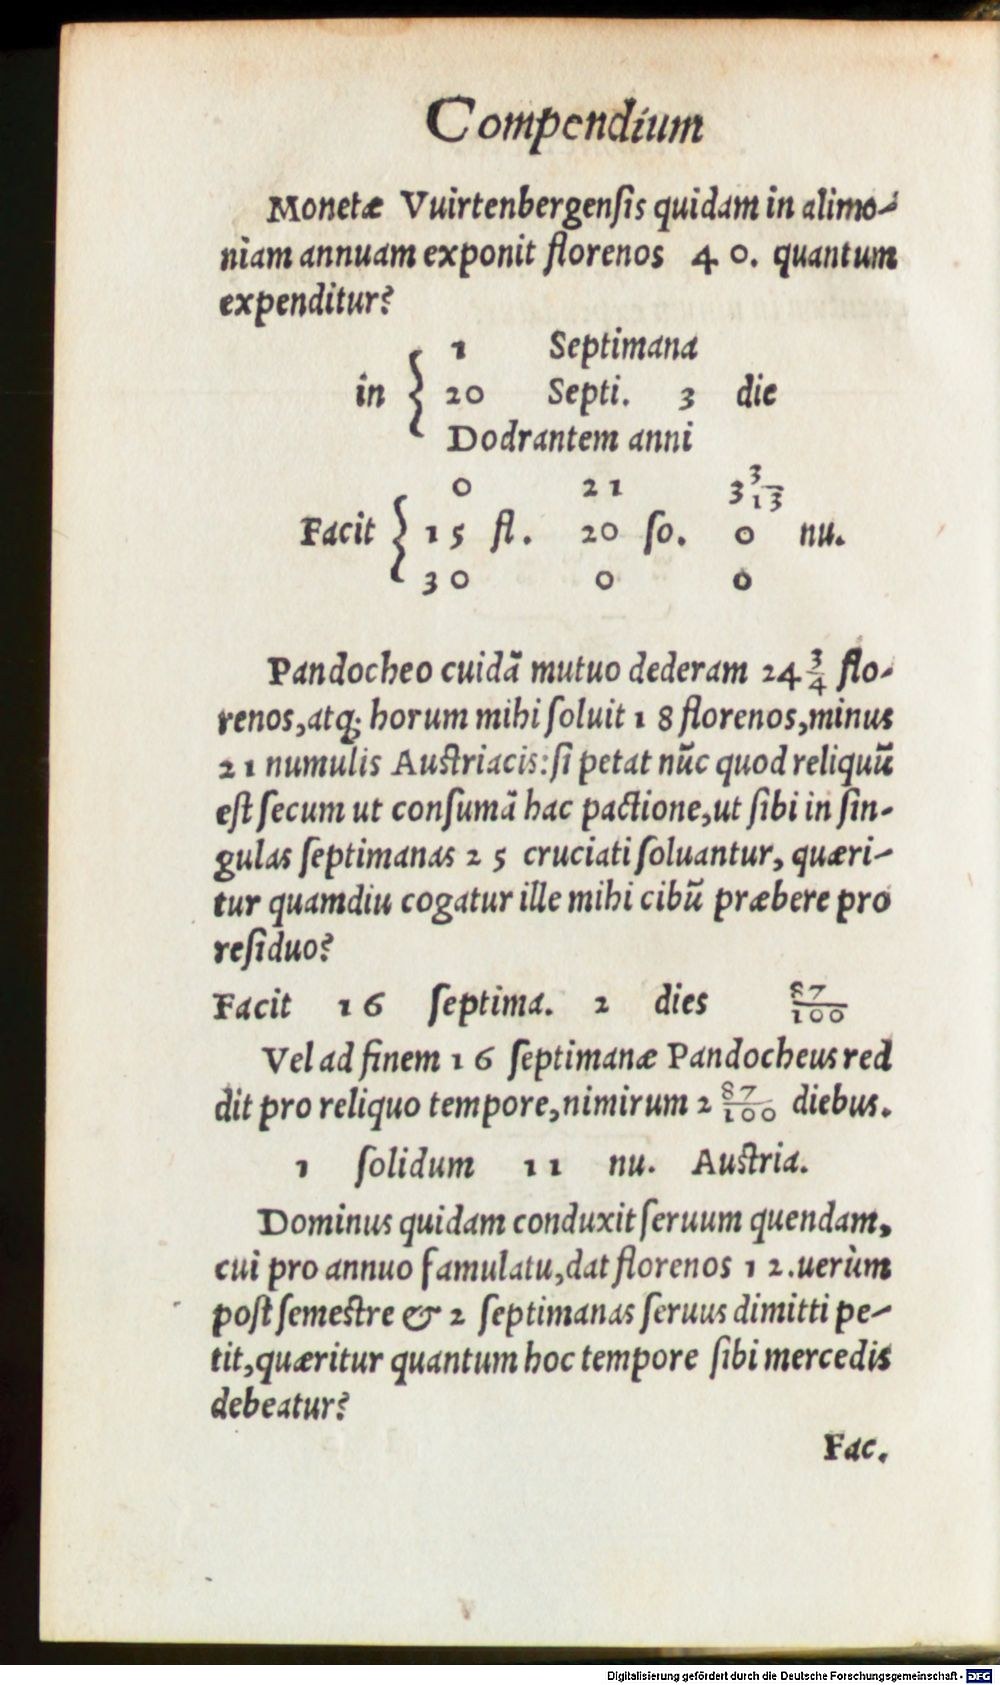 Compendium
Monetæ Vuirtenbergenſis quidam in alimo-
niam annuam exponit florenos 40. quantum
expenditur?
1 Septimana
in { 20 Septi. 3 die
Dodrantem anni
0 21 3 3/13
Facit { 15 fl. 20 ſo. 0 nu.
30 0 0
Pandocheo cuidã mutuo dederam 24 3/4 flo-
renos, atq; horum mihi ſoluit 18 florenos, minus
21 numulis Auſtriacis: ſi petat nũc quod reliquũ
eſt ſecum ut conſumã hac pactione, ut ſibi in ſin-
gulas ſeptimanas 25 cruciati ſoluantur, quæri-
tur quamdiu cogatur ille mihi cibũ præbere pro
reſiduo?
Facit 16 ſeptima. 2 dies 87/100
Vel ad finem 16 ſeptimanæ Pandocheus red
dit pro reliquo tempore, nimirum 2 87/100 diebus.
1 ſolidum 11 nu. Auſtria.
Dominus quidam conduxit ſeruum quendam,
cui pro annuo famulatu, dat florenos 12. uerùm
poſt ſemeſtre & 2 ſeptimanas ſeruus dimitti pe-
tit, quæritur quantum hoc tempore ſibi mercedis
debeatur?
Fac.
Digitalisierung gefördert durch die Deutsche Forschungsgemeinschaft - DFG